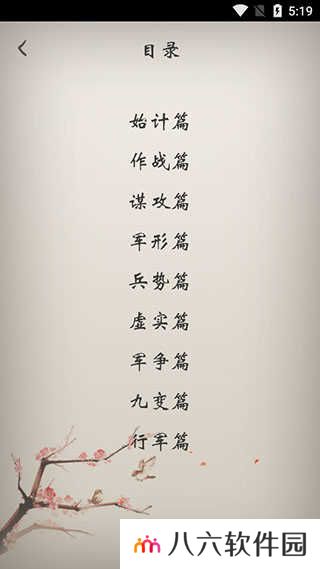 5:19
目录
始计篇
作战篇
谋攻篇
军形篇
兵势篇
虚实篇
军争篇
九变篇
行军篇
八六软件园